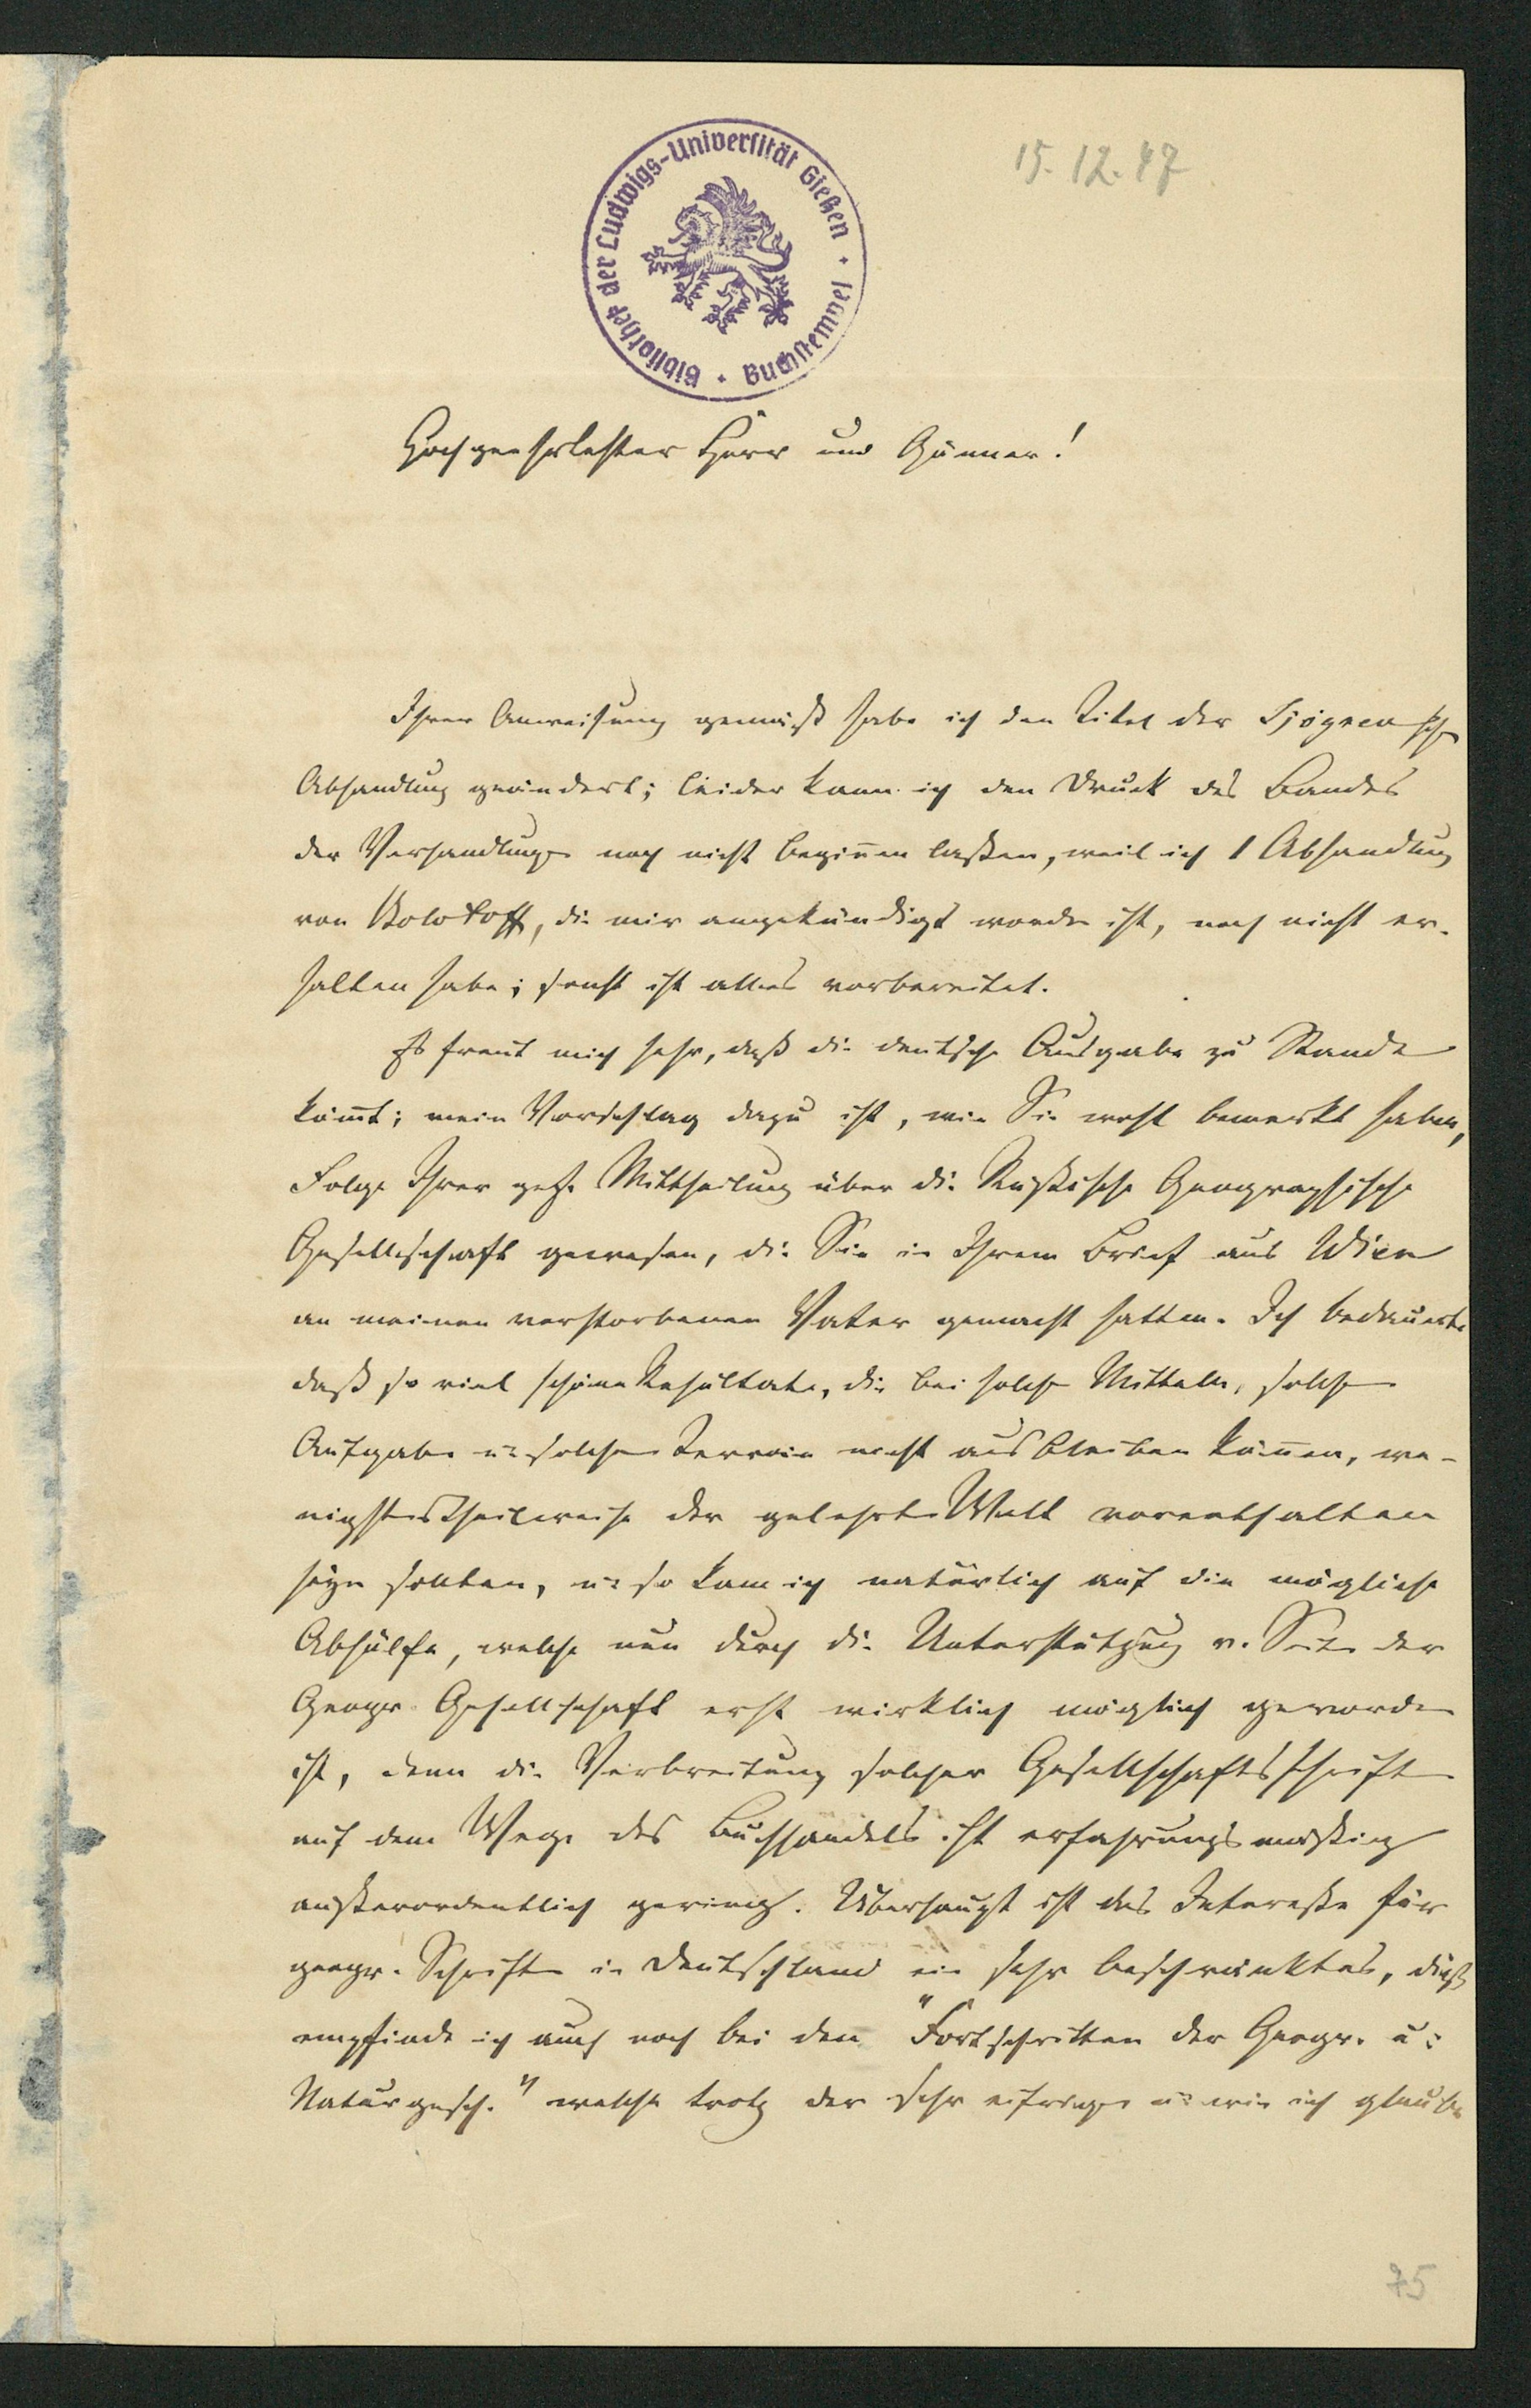 15.12.47
Bibliothek der Ludwigs-Universität Gießen + Buchstempel +
Hochgeehrtester Herr und Gönner!
Ihrer Anweisung gemäß habe ich den Titel der Sjögrenschen
Abhandlung geändert; leider kann ich den Druck des Bandes
der Verhandlungen noch nicht beginnen laßen, weil ich 1 Abhandlung
von Bolotoff, die mir angekündigt worden ist, noch nicht er-
halten habe; sonst ist alles vorbereitet.
Es freut mich sehr, daß die deutsche Ausgabe zu Stande
kömt; mein Vorschlag dazu ist, wie Sie wohl bemerkt haben,
Folge Ihrer gef. Mittheilung über die Rußische Geographische
Gesellschaft gewesen, die Sie in Ihrem Brief aus Wien
an meinen verstorbenen Vater gemacht hatten. Ich bedauerte
daß so viel schöne Resultate, die bei solchen Mitteln, solchen
Aufgaben u: solchem Terrain nicht ausbleiben können, we-
nigstens theilweise der gelehrten Welt vorenthalten
seyn sollten, u: so kam ich natürlich auf die mögliche
Abhülfe, welche nun durch die Unterstützung v. Seiten der
Geogr. Gesellschaft erst wirklich möglich geworden
ist, denn die Verbreitung solcher Gesellschaftsschriften
auf dem Wege des Buchhandels ist erfahrungsmäßig
außerordentlich gering. Überhaupt ist das Intereße für
geogr. Schriften in Deutschland ein sehr beschränktes, dieß
empfinde ich auch noch bei den "Fortschritten der Geogr. u:
Naturgesch." welche trotz der sehr eifrigen u: wie ich glaube
75